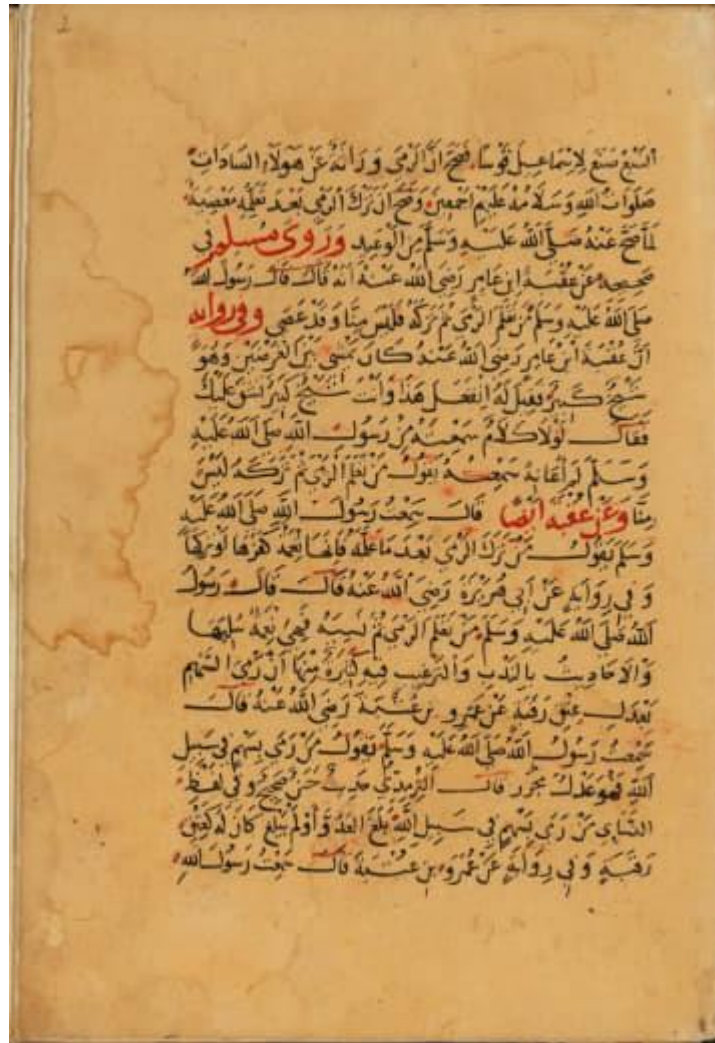 النبع صنع لاسماعيل قوسا فصح ان الرمى وراثة عن هولاء السادات
صلوات الله وسلامه عليهم اجمعين وصح ان ترك الرمي بعد تعلمه معصية
لما صح عنه صلى الله عليه وسلم من الوعيد وروى مسلم في
صحيحه عن عقبة ابن عامر رضي الله عنه انه قال قال رسول الله
صلى الله عليه وسلم من تعلم الرمي ثم تركه فليس منا وقد عصى وفي رواية
ان عقبة ابن عامر رضي الله عنه كان يمشي بين الغرضين وهو
شيخ كبير فقيل له اتفعل هذا وانت شيخ كبير يشق عليك
فقال لولا كلام سمعته من رسول الله صلى الله عليه
وسلم لم اعانه سمعته يقول من تعلم الرمي ثم تركه ليس
منا وعن عقبة ايضا قال سمعت رسول الله صلى الله عليه
وسلم يقول من ترك الرمي بعد ما علمه فانها نعمة كفرها او تركها
وفي رواية عن ابي هريرة رضي الله عنه قال قال رسول
الله صلى الله عليه وسلم من تعلم الرمي ثم نسيه فهي نعمة سلبها
والاحاديث بالندب والترغيب فيه كثيرة منها ان رمي السهم
يعدل عتق رقبة عن عمرو بن عبسة رضي الله عنه قال
سمعت رسول الله صلى الله عليه وسلم يقول من رمى بسهم في سبيل
الله فهو عدل محرر قال الترمذي حديث حسن صحيح وفي لفظ
النساي من رمى بسهم في سبيل الله بلغ العدو او لم يبلغ كان له كعتق
رقبة وفي رواية عن عمرو بن عبسة قال سمعت رسول الله